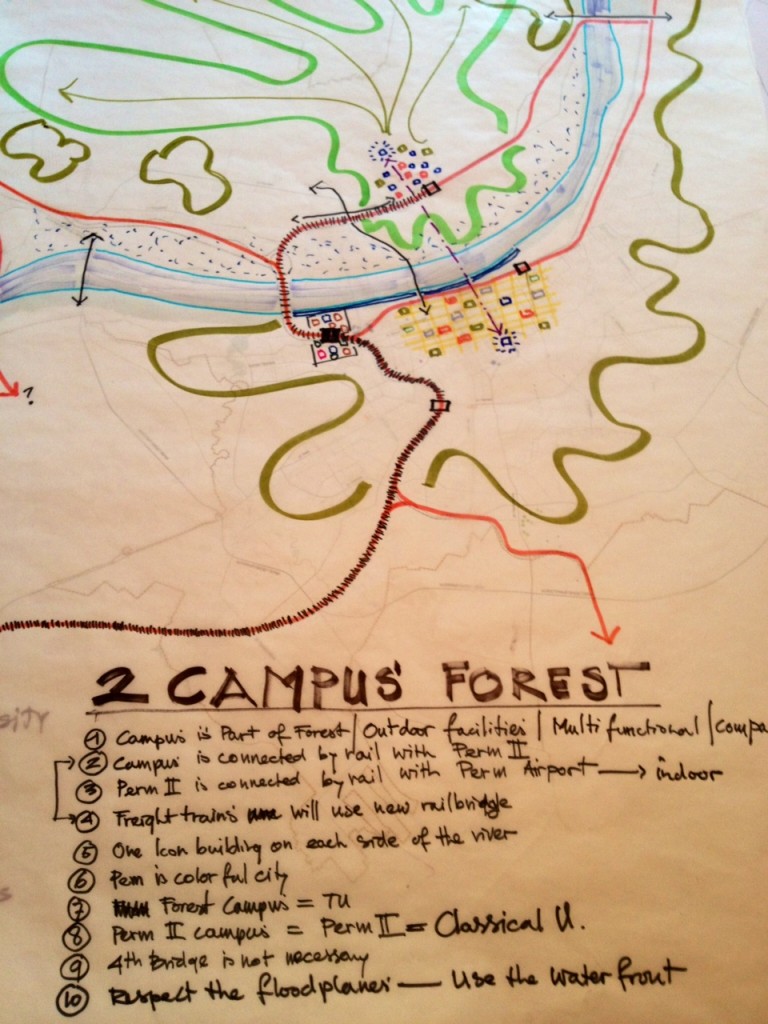 ?
2 CAMPUS FOREST
1 Campus is Part of Forest / Outdoor facilities / Multi functional / compa
2 Campus is connected by rail with Perm II
3 Perm II is connected by rail with Perm Airport → indoor
4 Freight trains will use new railbridge
5 One Icon building on each side of the river
6 Perm is colorful city
7 Forest Campus = TU
8 Perm II campus = Perm II = Classical U.
9 4th Bridge is not necessary
10 Respect the floodplanes — Use the water front